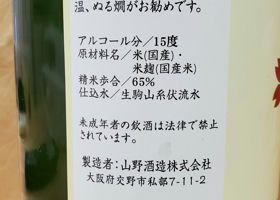 温、ぬる燗がお勧めです。
アルコール分／15度
原材料名／米(国産)・
米麹(国産米)
精米歩合／65%
仕込水／生駒山系伏流水
未成年者の飲酒は法律で禁止
されています。
製造者：山野酒造株式会社
大阪府交野市私部7-11-2